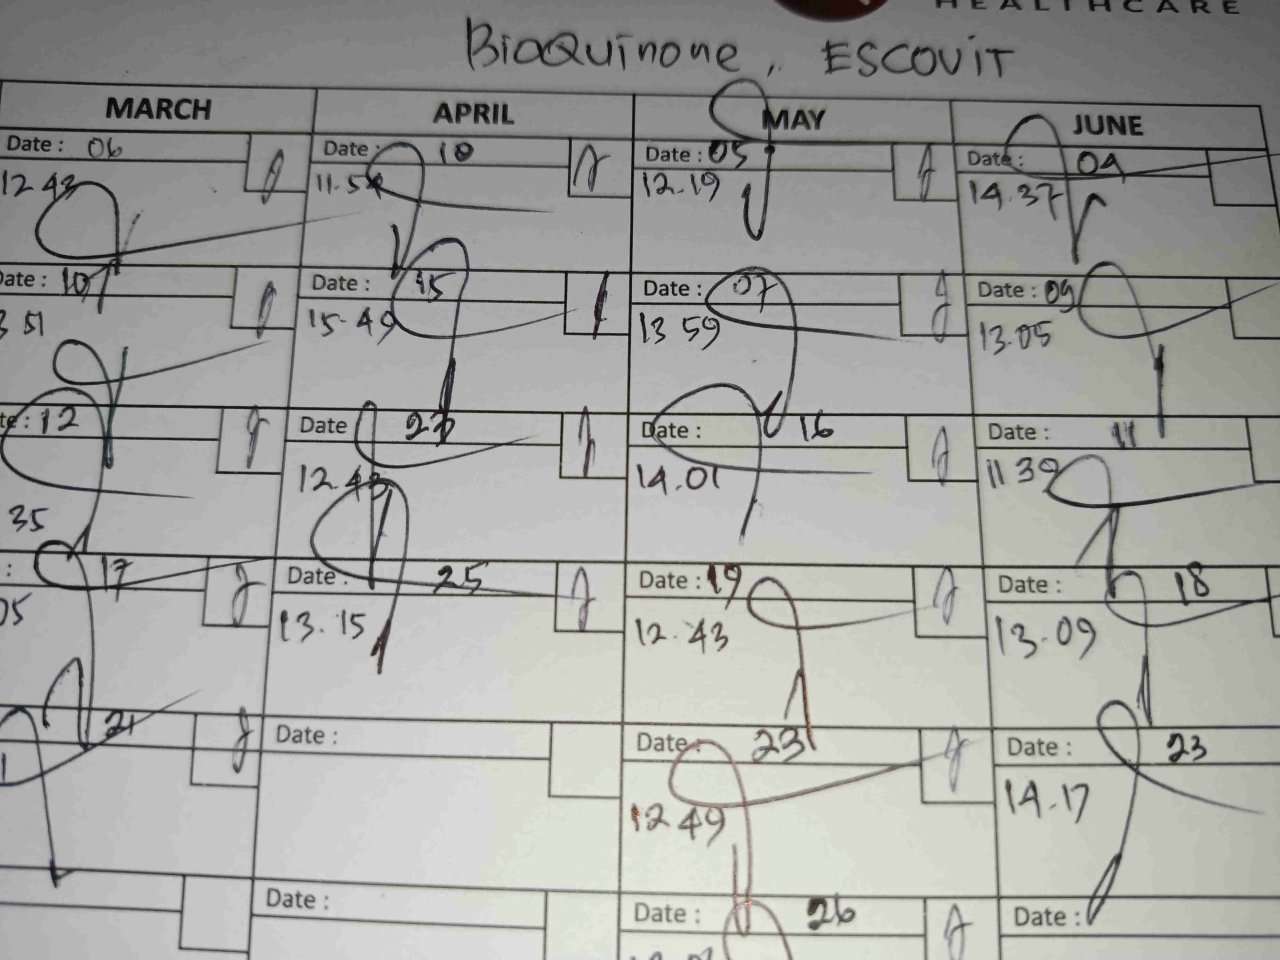 HEALTHCARE
BioQuinone, ESCOVIT
MARCH APRIL MAY JUNE
Date : 06 Date : 10 Date : 05 Date : 04
12 43 11.54 12.19 14.37
Date : 10 Date : 15 Date : 07 Date : 09
51 15.49 13 59 13.05
12 Date 23 Date : 16 Date : 11
35 12.43 14.01 11 39
: 17 Date : 25 Date : 19 Date : 18
05 13.15 12.43 13.09
21 Date : Date : 23 Date : 23
12 49 14.17
Date : Date : 26 Date :